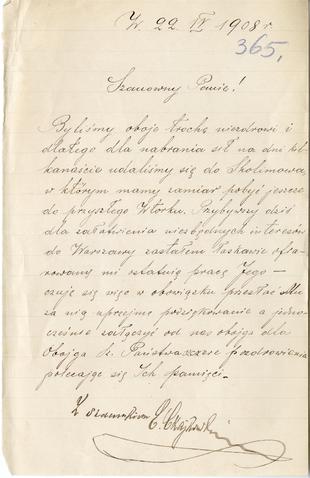 W. 22 IV 1908 r
365.
Szanowny Panie!
Byliśmy oboje trochę niezdrowi i
dlatego dla nabrania sił na dni kil-
kanaście udaliśmy się do Skolimowa,
w którym mamy zamiar pobyć jeszcze
do przyszłego Wtorku. Przybywszy dziś
dla załatwienia niezbędnych interesów
do Warszawy zastałem łaskawie ofia-
rowaną mi ostatnią pracę Jego —
czuję się więc w obowiązku przesłać Mu
za nią uprzejme podziękowanie a jedno-
cześnie załączyć od nas obojga dla
Obojga Sz. Państwa szczere pozdrowienia
polecając się Ich pamięci. —
Z szacunkiem